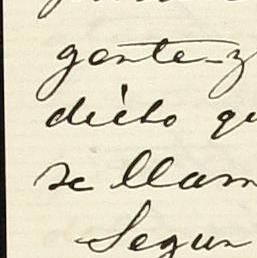 gente-y
dicho qu
se llam
Segun